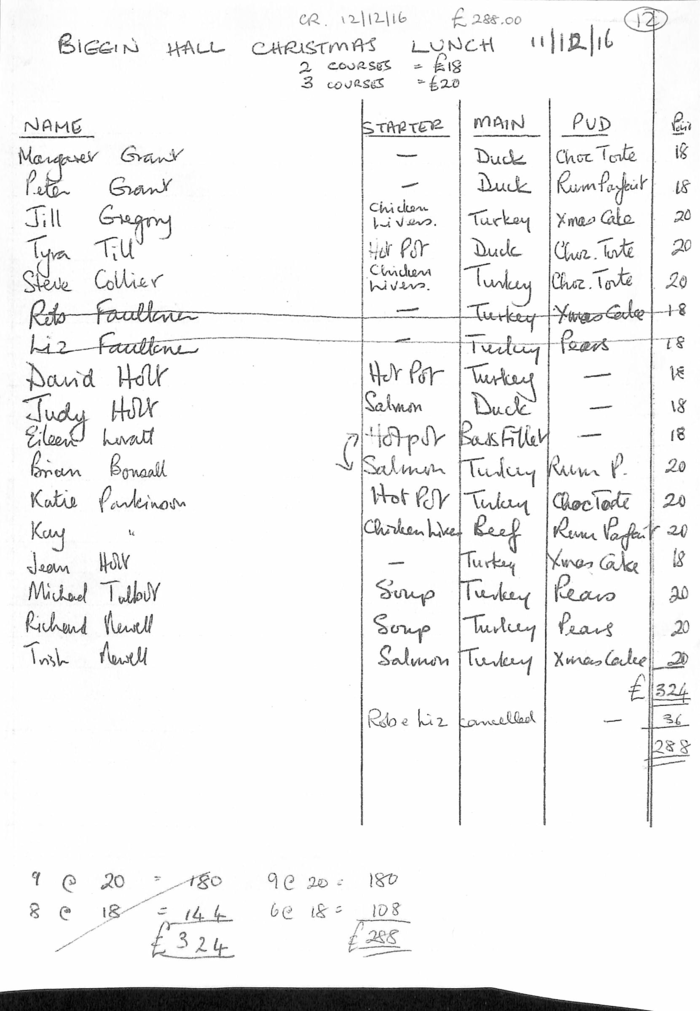 CR. 12/12/16 £288.00 12
BIGGIN HALL CHRISTMAS LUNCH 11/12/16
2 COURSES = £18
3 COURSES = £20
NAME STARTER MAIN PUD Paid
Margaret Grant — Duck Choc Torte 18
Peter Grant — Duck Rum Parfait 18
Jill Gregory Chicken Livers. Turkey Xmas Cake 20
Tyra Till Hot Pot Duck Choc. Torte 20
Steve Collier Chicken Livers. Turkey Choc. Torte 20
Rob Faulkner — Turkey Xmas Cake 18
Liz Faulkner — Turkey Pears 18
David Holt Hot Pot Turkey — 18
Judy Holt Salmon Duck — 18
Eileen Lovatt Hotpot Bass Fillet — 18
Brian Bonsall Salmon Turkey Rum P. 20
Katie Parkinson Hot Pot Turkey Choc Torte 20
Kay " Chicken Liver Beef Rum Parfait 20
Jean Holt — Turkey Xmas Cake 18
Michael Talbot Soup Turkey Pears 20
Richard Newell Soup Turkey Pears 20
Trish Newell Salmon Turkey Xmas Cake 20
£ 324
Rob e Liz cancelled — 36
288
9 @ 20 = 180 9@ 20 = 180
8 @ 18 = 144 6@ 18 = 108
£324 £288